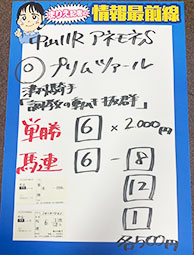 まりえ記者の
情報最前線
中山11R アネモネS
◎ プリムツァール
津村騎手
「調教の動き抜群」
単勝 6 × 2000円
馬連 6 - 8
12
1
各500円